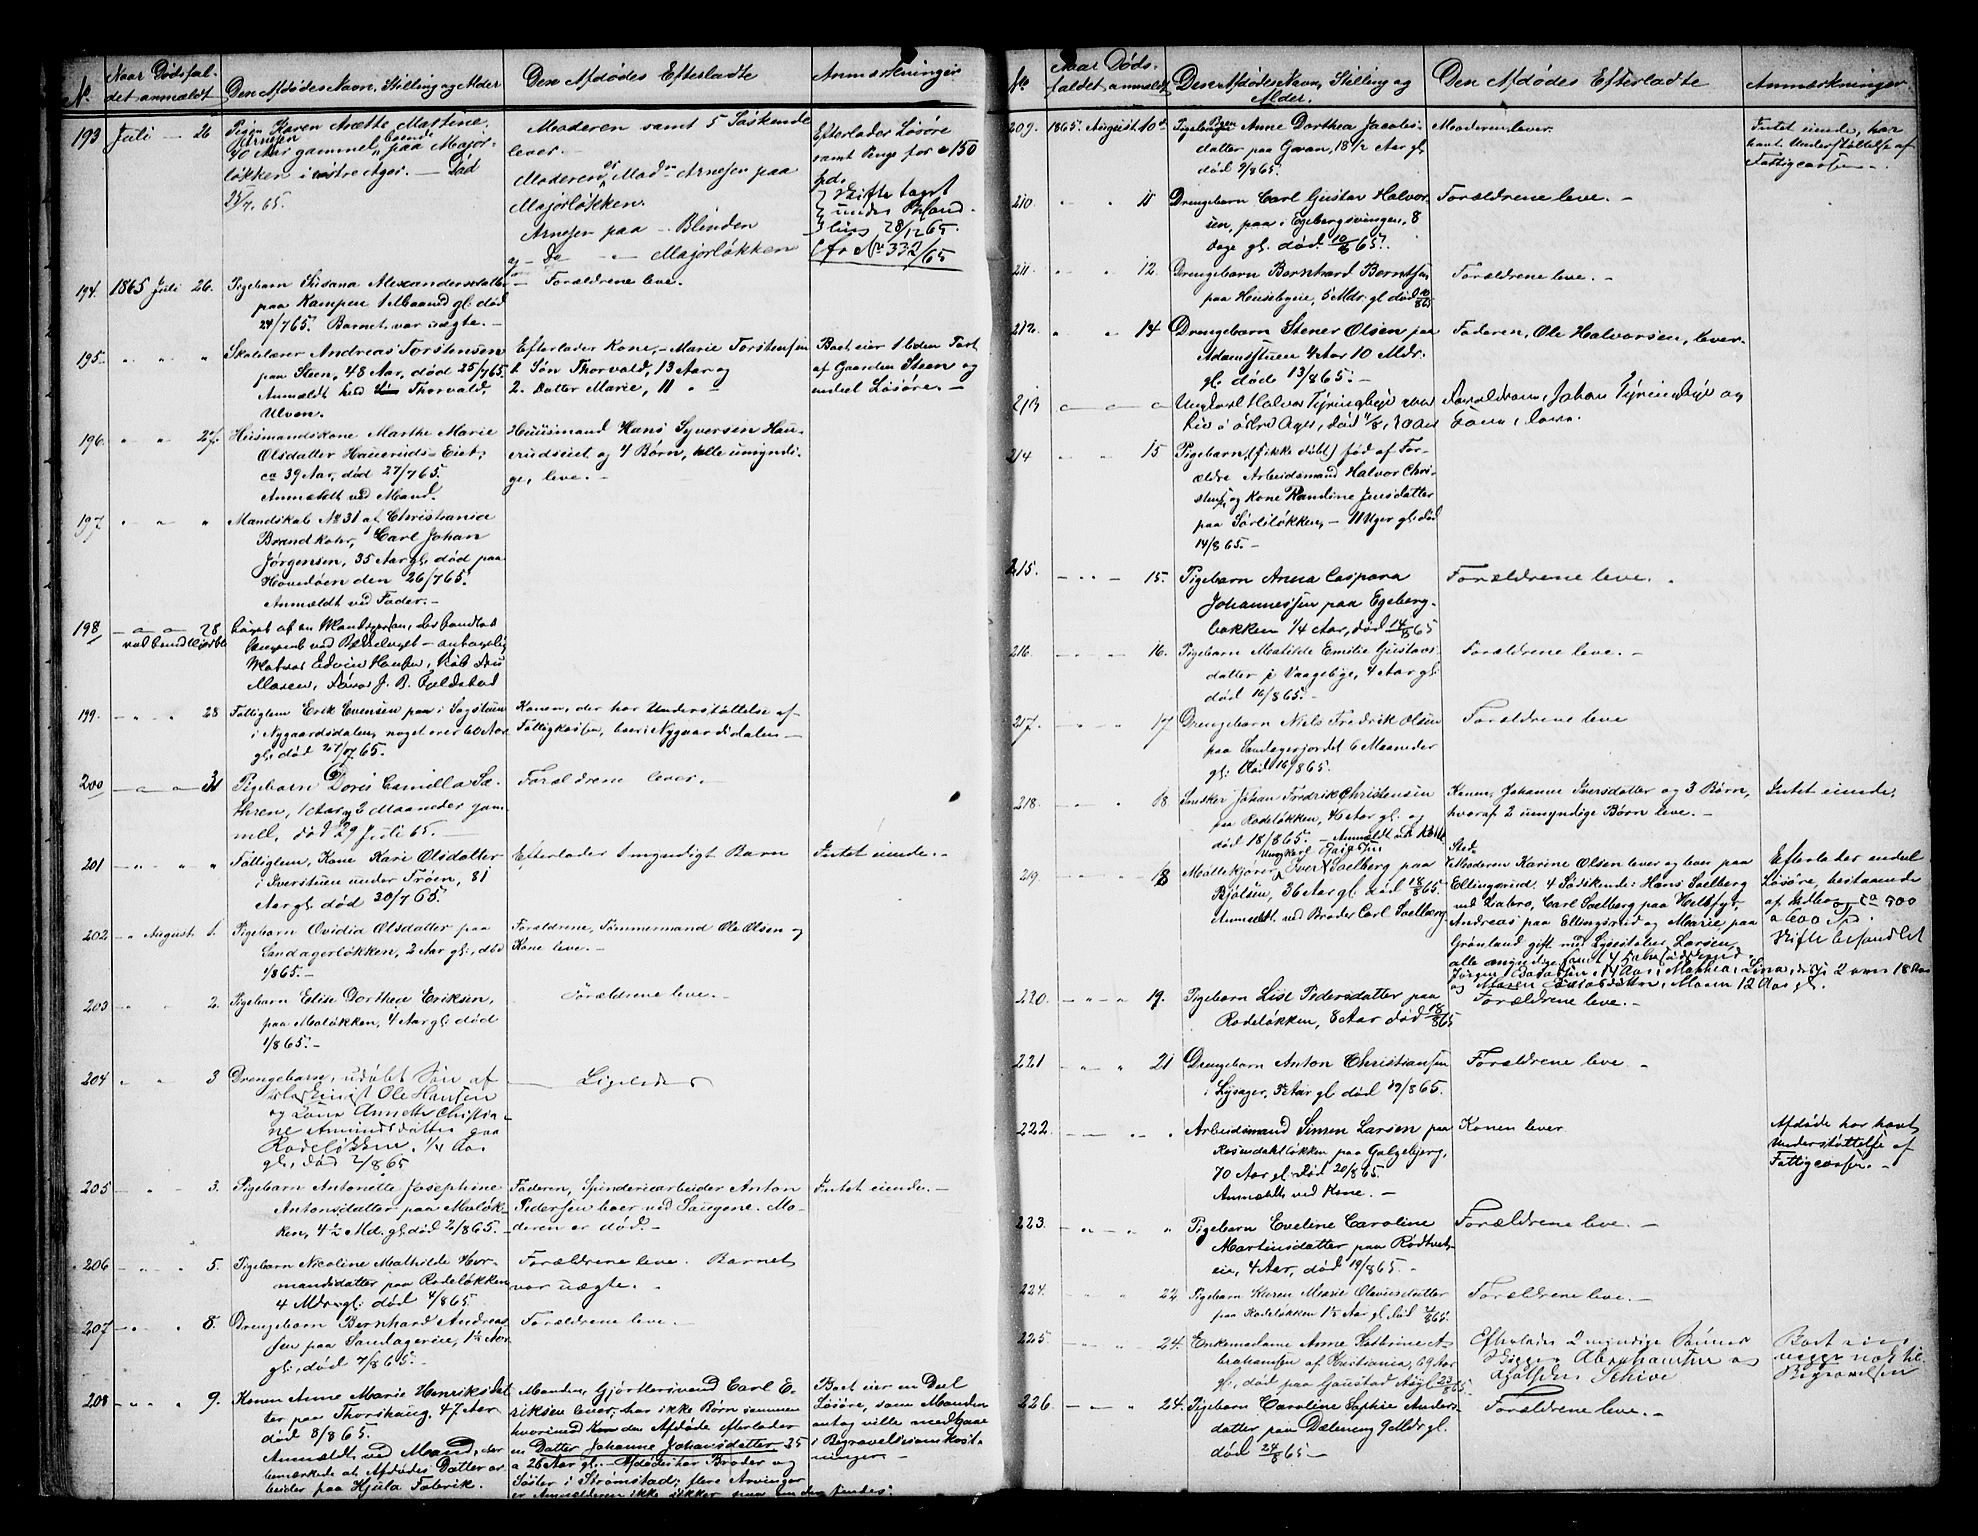 No.
Naar Dødsfal-
det anmældt
Den Afdødes Navn, Stilling og Alder
Den Afdødes Efterladte
Anmærkninger
193 Juli - 26
Pigen Karen Anette Martine
Arnesen
40 Aar gammel, boende paa Major-
løkken i vestre Ager. — Død
25/7 65.
Moderen samt 5 Søskende
lever.
Moderen, Mad. Arnesen paa
Majorløkken.
Arnesen paa - Blinden
og Do — Majorløkken
Efterlader Løsøre
samt Penge for 150
Spd.
Skifte tagt
under Behand-
ling 28/12 65.
cfr No 332/65
194. 1865 Juli 26.
Pigebarn Susana Alexandersdatter
paa Kampen 1 Maaned gl. død
24/7 65. Barnet var uægte. —
Forældrene leve.
195. " " "
Skolelærer Andreas Torstensen
paa Steen, 48 Aar, død 25/7 65.
Anmældt ved Thorvald,
Ulven.
Efterlader Kone, - Marie Torstensen
1. Søn Thorvald, 13 Aar og
2. Datter Marie, 11 " —
Boet eier 1 liden Part
af Gaarden Steen og
endeel Løsøre. —
196. " " 27.
Huusmandskone Marthe Marie
Olsdatter Haueruds-Eiet,
ca 39 Aar, død 27/7 65.
Anmældt ved Mand.
Huusmand Hans Syversen Hau-
erudseiet og 4 Børn, alle umyndi-
ge, leve. —
197 " " "
Mandskab No 31 af Christiania
Brandkorps, Carl Johan
Jørgensen, 35 Aar gl. død paa
Hovedøen den 26/7 65.
Anmældt ved Fader. —
198 — " — " — 28
Liget af en Mandsperson, der fandtes
Edvin Hansen,
Maren,
199. — " " 28
Fattiglem Erik Evensen paa i Sagstuen
i Nygaardsdalen, noget over 60 Aar
gl. død 27/7 65.
Konen, der har Understøttelse af
Fattigkassen, boer i Nygaardsdalen —
200 — " — " — 31
Pigebarn Doris Camilla Sa-
thren, 1 Aar og 2 Maaneder gam-
mel, død 29 Juli 65. —
Forældrene lever. —
201 — " " "
Fattiglem, Kone Kari Olsdatter
i Iverstuen under Trøen, 81
Aar gl. død 30/7 65.
Efterlader 1 myndigt Barn
Intet eiende. —
202 " August 1.
Pigebarn Ovidia Olsdatter paa
Sandagerløkken, 2 Aar gl., død
1/8 65. —
Forældrene, Tømmermand Ole Olsen og
Kone leve. —
203 — " " 2.
Pigebarn Elise Dorthea Eriksen,
paa Moløkken, 4 Aar gl. død
1/8 65. —
Forældrene leve. —
204 " " 3
Drengebarn, udøbt Søn af
Ole Hansen
og Kone Annette Christia-
ne Amundsdatter paa
Rodeløkken. 1/4 Aar
gl., død 2/8 65
Ligeledes
205 — " — 3.
Pigebarn Antonette Josephine
Antonsdatter paa Moløk-
ken, 4 1/2 Md. gl. død 2/8 65. —
Faderen, Spinderiarbeider Anton
Pedersen boer ved Saugene. Mo-
deren er død. —
Intet eiende. —
206 — " " 5.
Pigebarn Nicoline Mathilde Her-
mandsdatter paa Rodeløkken
4 Mdr. gl. død 4/8 65.
Forældrene leve. Barnet
var uægte. —
207 — " " 8.
Drengebarn Bernhard Andrea-
sen paa Sandagereie, 1 1/2 Aar
gl., død 7/8 65. —
Forældrene leve. —
208 — " " 9.
Konen Anne Marie Henriksdat-
ter paa Thorshaug, 47 Aar
død 8/8 65.
Anmældt ved Mand, der
bemærkede at Afdødes Datter ar-
beider paa Hjula Fabrik.
Manden, Gjørtlersvend Carl E-
riksen lever, har ikke Børn sammen
hvorimod den Afdøde efterlader
en Datter Johanne Johansdatter 25
a 26 Aar gl. — Afdøde har Broder og
Søster i Strømstad; flere Arvinger
er Anmælderen ikke sikker paa
Boet eier en Deel
Løsøre, som Manden
antog ville medgaae
i Begravelsesomkost-
ninger. —
No.
Naar Døds-
faldet anmældt
Den Afdødes Navn, Stilling og
Alder.
Den Afdødes Efterladte
Anmærkninger
209. 1865. August 10de
Pigen Anne Dorthea Jacobs-
datter paa Grøan, 18 1/2 Aar gl.
død 9/8 65.
Moderen lever.
Intet eiende, har
havt Understøttelse af
Fattigcassen. —
210 " " 11
Drengebarn Carl Gustav Halvor-
sen, paa i Egebergsvingen, 8
Dage gl. død. 10/8 65.
Forældrene leve. —
211. " " 12.
Drengebarn Bernhard Berntsen
paa Heusebyeie, 5 Mdr. gl. død 10/8 65
Forældrene leve. —
212. " " 14
Drengebarn Stener Olsen paa
Adamsstuen 4 Aar 10 Mdr.
gl. døde 13/8 65. —
Faderen, Ole Halvorsen, lever.
213 — " — "
Ungkarl Halvor Tyringbye
i østre Ager, død 11/8, 20 Aar
Forældrene, Johan Tyringbye og
Kone, leve.
214 " " 15
Pigebarn, (ikke døbt) fød af For-
ældre Arbeidsmand Halvor Chri-
stensen og Kone Randine Jensdatter
paa Sørliløkken, — 11 Uger gl. død
14/8 65. —
215. — " — 15.
Pigebarn Anna Caspara
Johannessen paa Egeberg-
bakken 1/4 Aar, død 14/8 65
Forældrene leve. .
216. — " " 16.
Pigebarn Matilde Emilie Gustavs-
datter i Vaagebye, 4 Aar gl.
død 16/8 65. —
Forældrene leve. —
217. — " " 17
Drengebarn Niels Fredrik Olsen
paa Sandagerjordet 6 Maaneder
gl. død 16/8 65.
Forældrene leve
218. — " " 18
Snedker Johan Fredrik Christensen
paa Rodeløkken, 46 Aar gl. og
død 18/8 65. — Anmældt ved Kone
Konen, Johanne Iversdatter og 3 Børn,
hvoraf 2 umyndige Børn leve. —
Intet eiende.
219. " " 18
Ungkarl
Møllekjører Iver Saelberg paa
Bjølsen, 36 Aar gl. død 18/8 65.
Anmældt ved Broder Carl Saelberg
Moderen Karine Olsen lever og boer paa
Ellingsrud. 4 Sødskende: Hans Saelberg
ved Zabro, Carl Saelberg paa Helsfyr,
Andreas paa Ellingsrud og Marie, paa
Grønland gift med Lysestøber Larsen,
alle myndige samt 4 Halvsødskend.
Jørgen Jacobsen, 14 Aar, Mathea, Lina, disse 2 over 18 Aar
og Maren Jacobsdatter, Maren 12 Aar gl.
Efterlader endeel
Løsøre, bestaaende
af Heste ca 500
a 600 Spd.
Skifte behandlet
220. — " " 19.
Pigebarn Lise Pedersdatter paa
Rodeløkken, 8 Aar død 18/8 65
Forældrene leve. —
221 — " " 21
Drengebarn Anton Christiansen
i Lysager, 3 Aar gl død 19/8 65.
Forældrene leve. —
222. — " "
Arbeidsmand Simen Larsen paa
Rosendahlløkken paa Galgebjerg,
70 Aar gl. død 20/8 65.
Anmældt ved Kone. —
Konen lever
Afdøde har havt
Understøttelse af
Fattigcassen. —
223. — " — "
Pigebarn Eveline Caroline
Martinsdatter paa Rødtvet-
eie, 4 Aar, død 19/8 65. —
Forældrene leve. —
224. " " 22
Pigebarn Karen Marie Olavesdatter
paa Rodeløkken 1 1/2 Aar gl. død 21/8 65.
Forældrene leve. —
225. — " — 24.
Enkemadame Anne Kathrine A-
brahamsen af Christiania, 69 Aar
gl, død paa Gaustad Asyl 23/8 65.
Efterlader 2 myndige Sønner
Abrahamsen og
Schive
Boet eier
neppe nok til
Begravelsen
226. — " — 24.
Pigebarn Caroline Sophie Anders-
datter paa Dæleneng 9 Mdr gl.
død 24/8 65 —
Forældrene leve. —